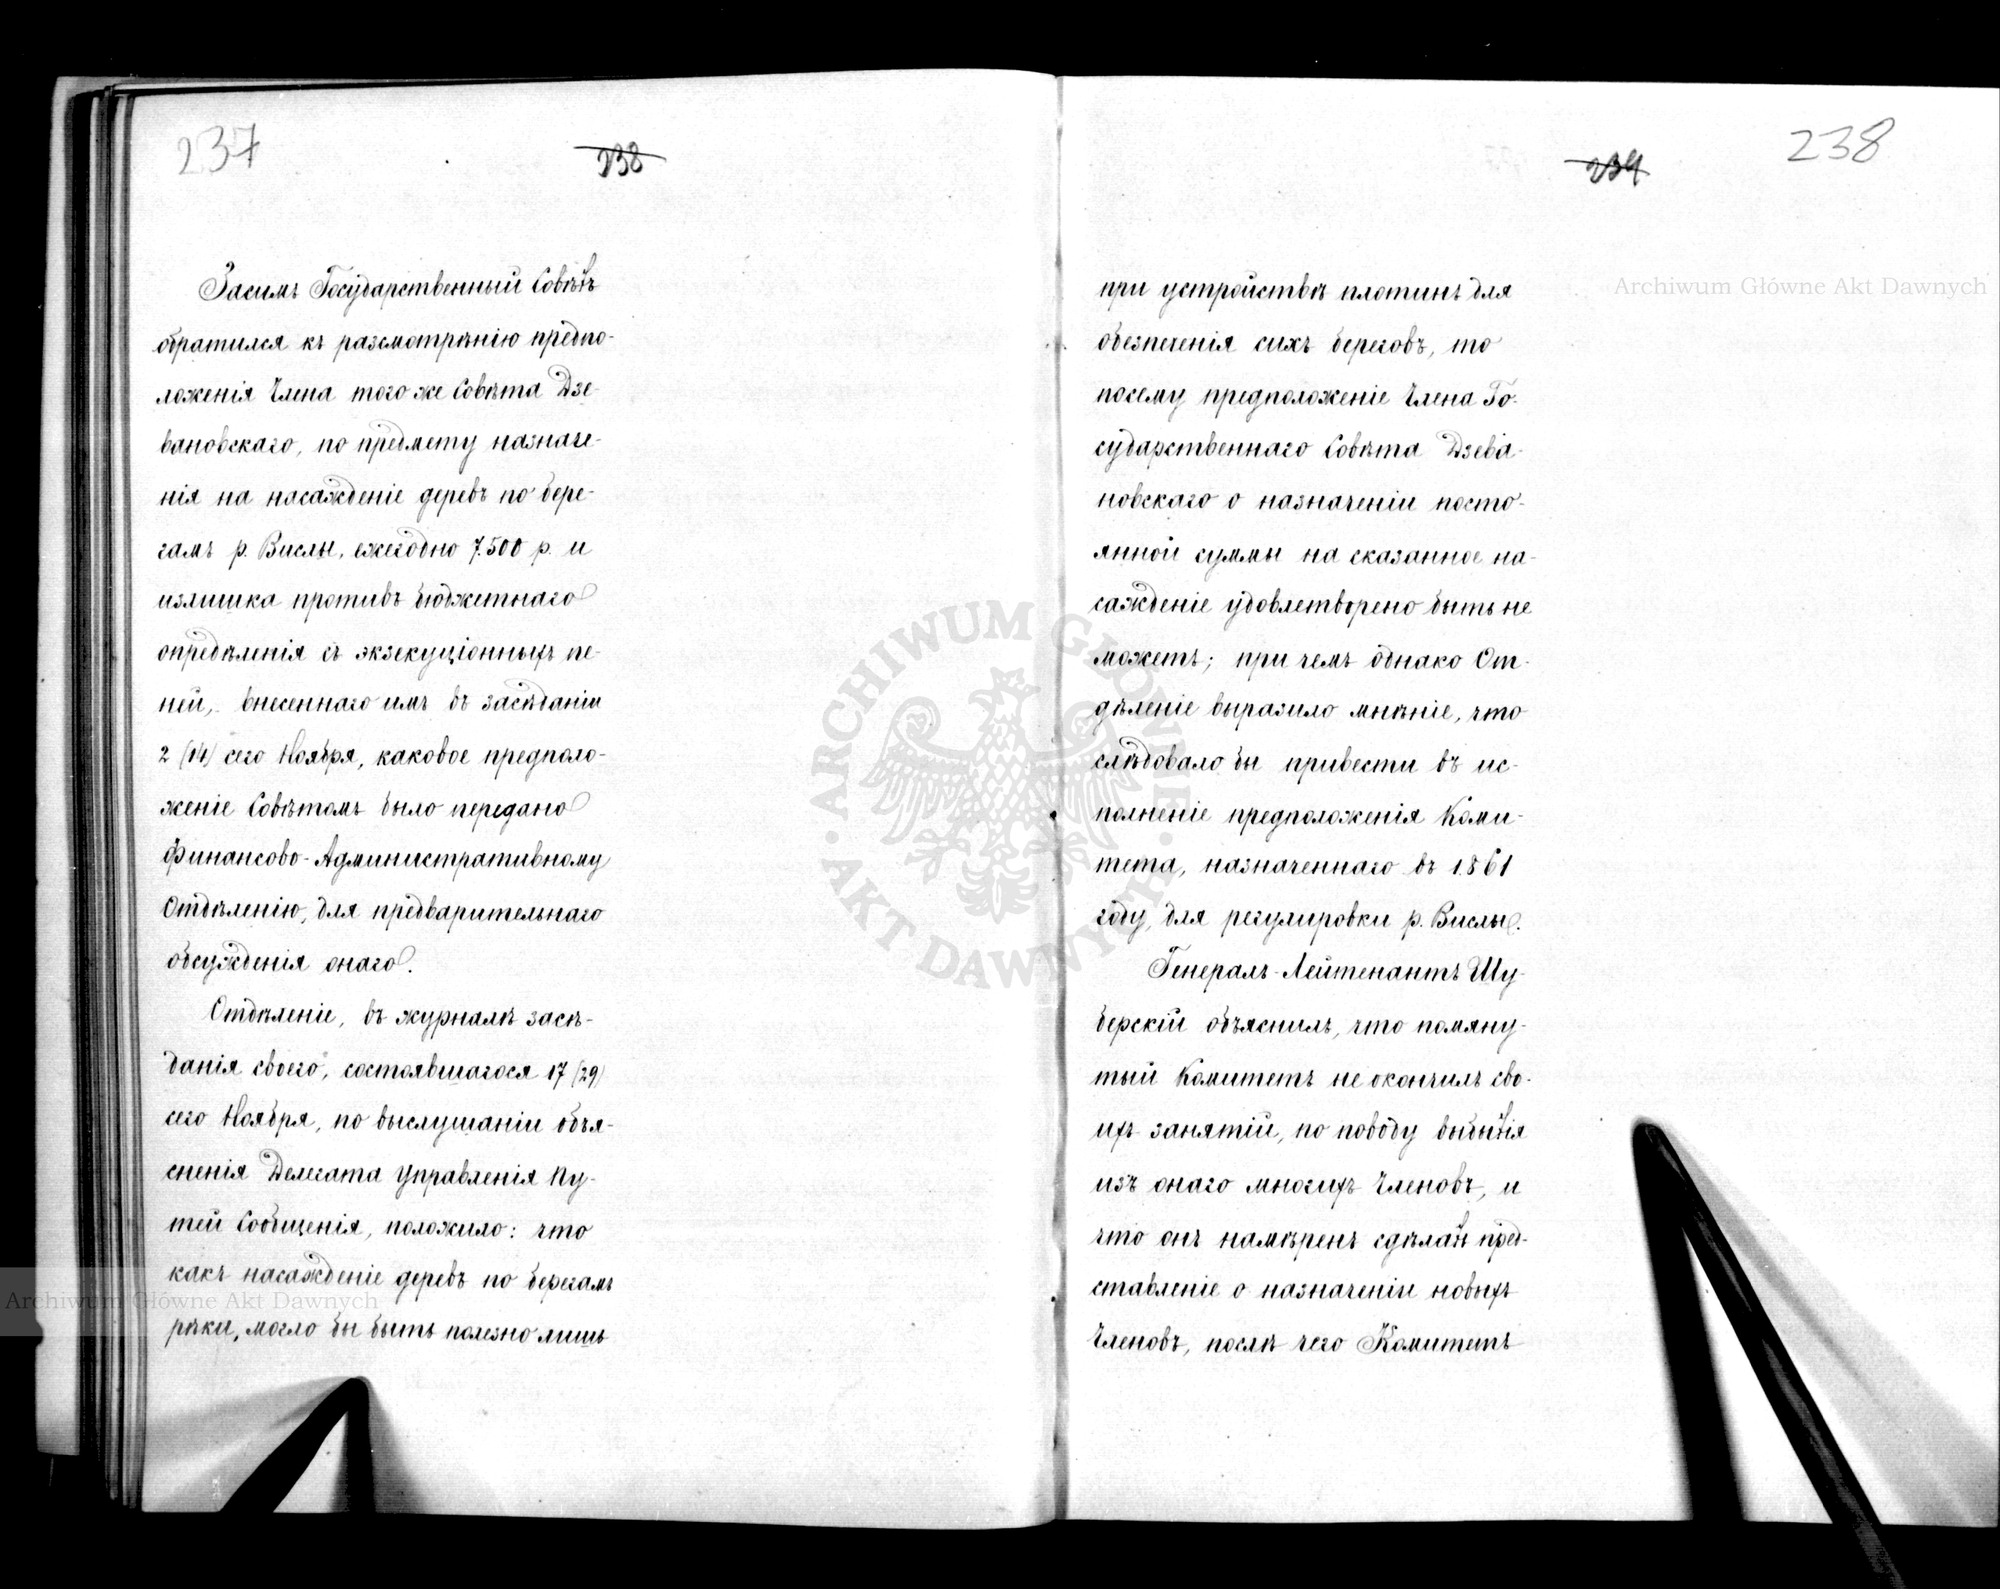 237
238
Засимъ Государственный Совѣтъ
обратился къ разсмотрѣнію предпо-
ложенія Члена того же Совѣта Дзе-
вановскаго, по предмету назначе-
нія на насажденіе деревъ по бере-
гамъ р. Вислы, ежегодно 7.500 р. и
излишка противъ бюджетнаго
опредѣленія съ экзекуціонныхъ пе-
ней, внесеннаго имъ въ засѣданіи
2 (14) сего Ноября, каковое предполо-
женіе Совѣтомъ было передано
Финансово-Административному
Отдѣленію, для предварительнаго
обсужденія онаго.
Отдѣленіе, въ журналѣ засѣ-
данія своего, состоявшагося 17 (29)
сего Ноября, по выслушаніи объя-
сненія Делегата Управленія Пу-
тей Сообщенія, положило: что
какъ насажденіе деревъ по берегамъ
рѣки, могло бы быть полезно лишь
Archiwum Główne Akt Dawnych
239
238
при устройствѣ плотинъ для
обезпеченія сихъ береговъ, то
посему предположеніе Члена Го-
сударственнаго Совѣта Дзева-
новскаго о назначеніи посто-
янной суммы на сказанное на-
сажденіе удовлетворено быть не
можетъ; при чемъ однако От-
дѣленіе выразило мнѣніе, что
слѣдовало бы привести въ ис-
полненіе предположенія Коми-
тета, назначеннаго въ 1861
году, для регулировки р. Вислы.
Генералъ-Лейтенантъ Шу-
берскій объяснилъ, что помяну-
тый Комитетъ не окончилъ сво-
ихъ занятій, по поводу выбытія
изъ онаго многихъ Членовъ, и
что онъ намѣренъ сдѣлать пред-
ставленіе о назначеніи новыхъ
Членовъ, послѣ чего Комитетъ
Archiwum Główne Akt Dawnych
ARCHIWUM GŁÓWNE AKT DAWNYCH